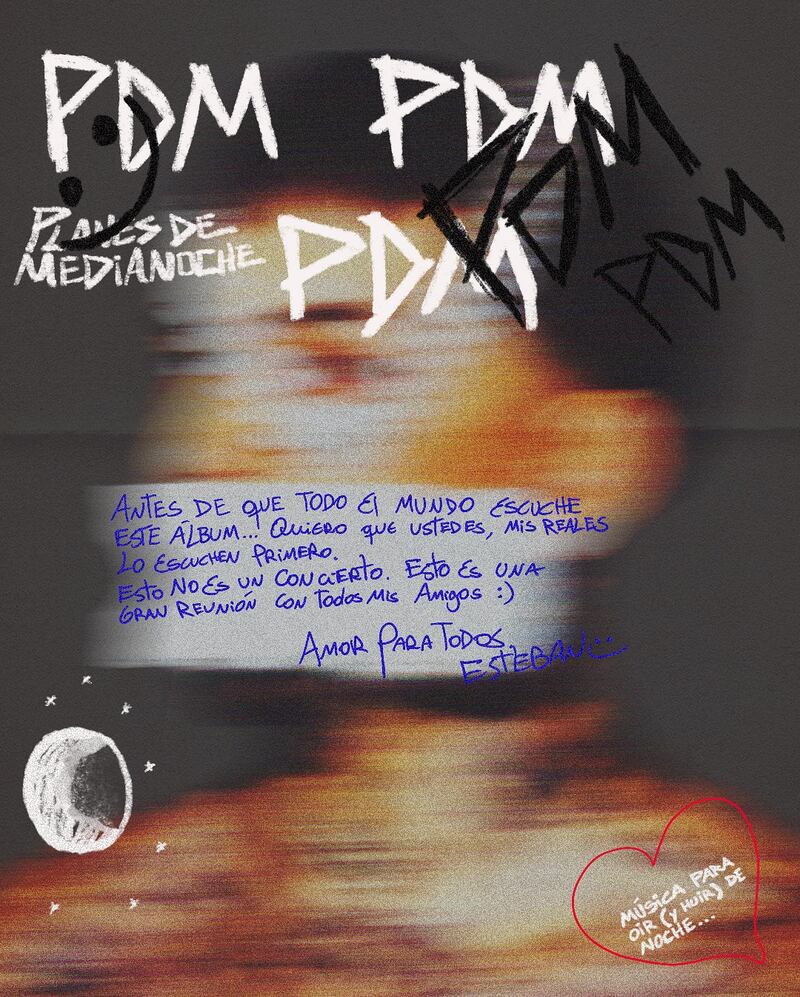 PDM PDM
PDM
PLANES DE
MEDIANOCHE
PDM
PDM
ANTES DE QUE TODO El MUNDO ESCUCHE
ESTE ÁLBUM... QUIERO QUE USTEDES, MIS REALES
LO ESCUCHEN PRIMERO.
ESTO NO ES UN CONCIERTO. ESTO ES UNA
GRAN REUNIÓN CON TODOS MIS AMIGOS :)
AMOR PARA TODOS.
ESTEBAN :)
MÚSICA PARA
OIR (Y HUIR) DE
NOCHE...